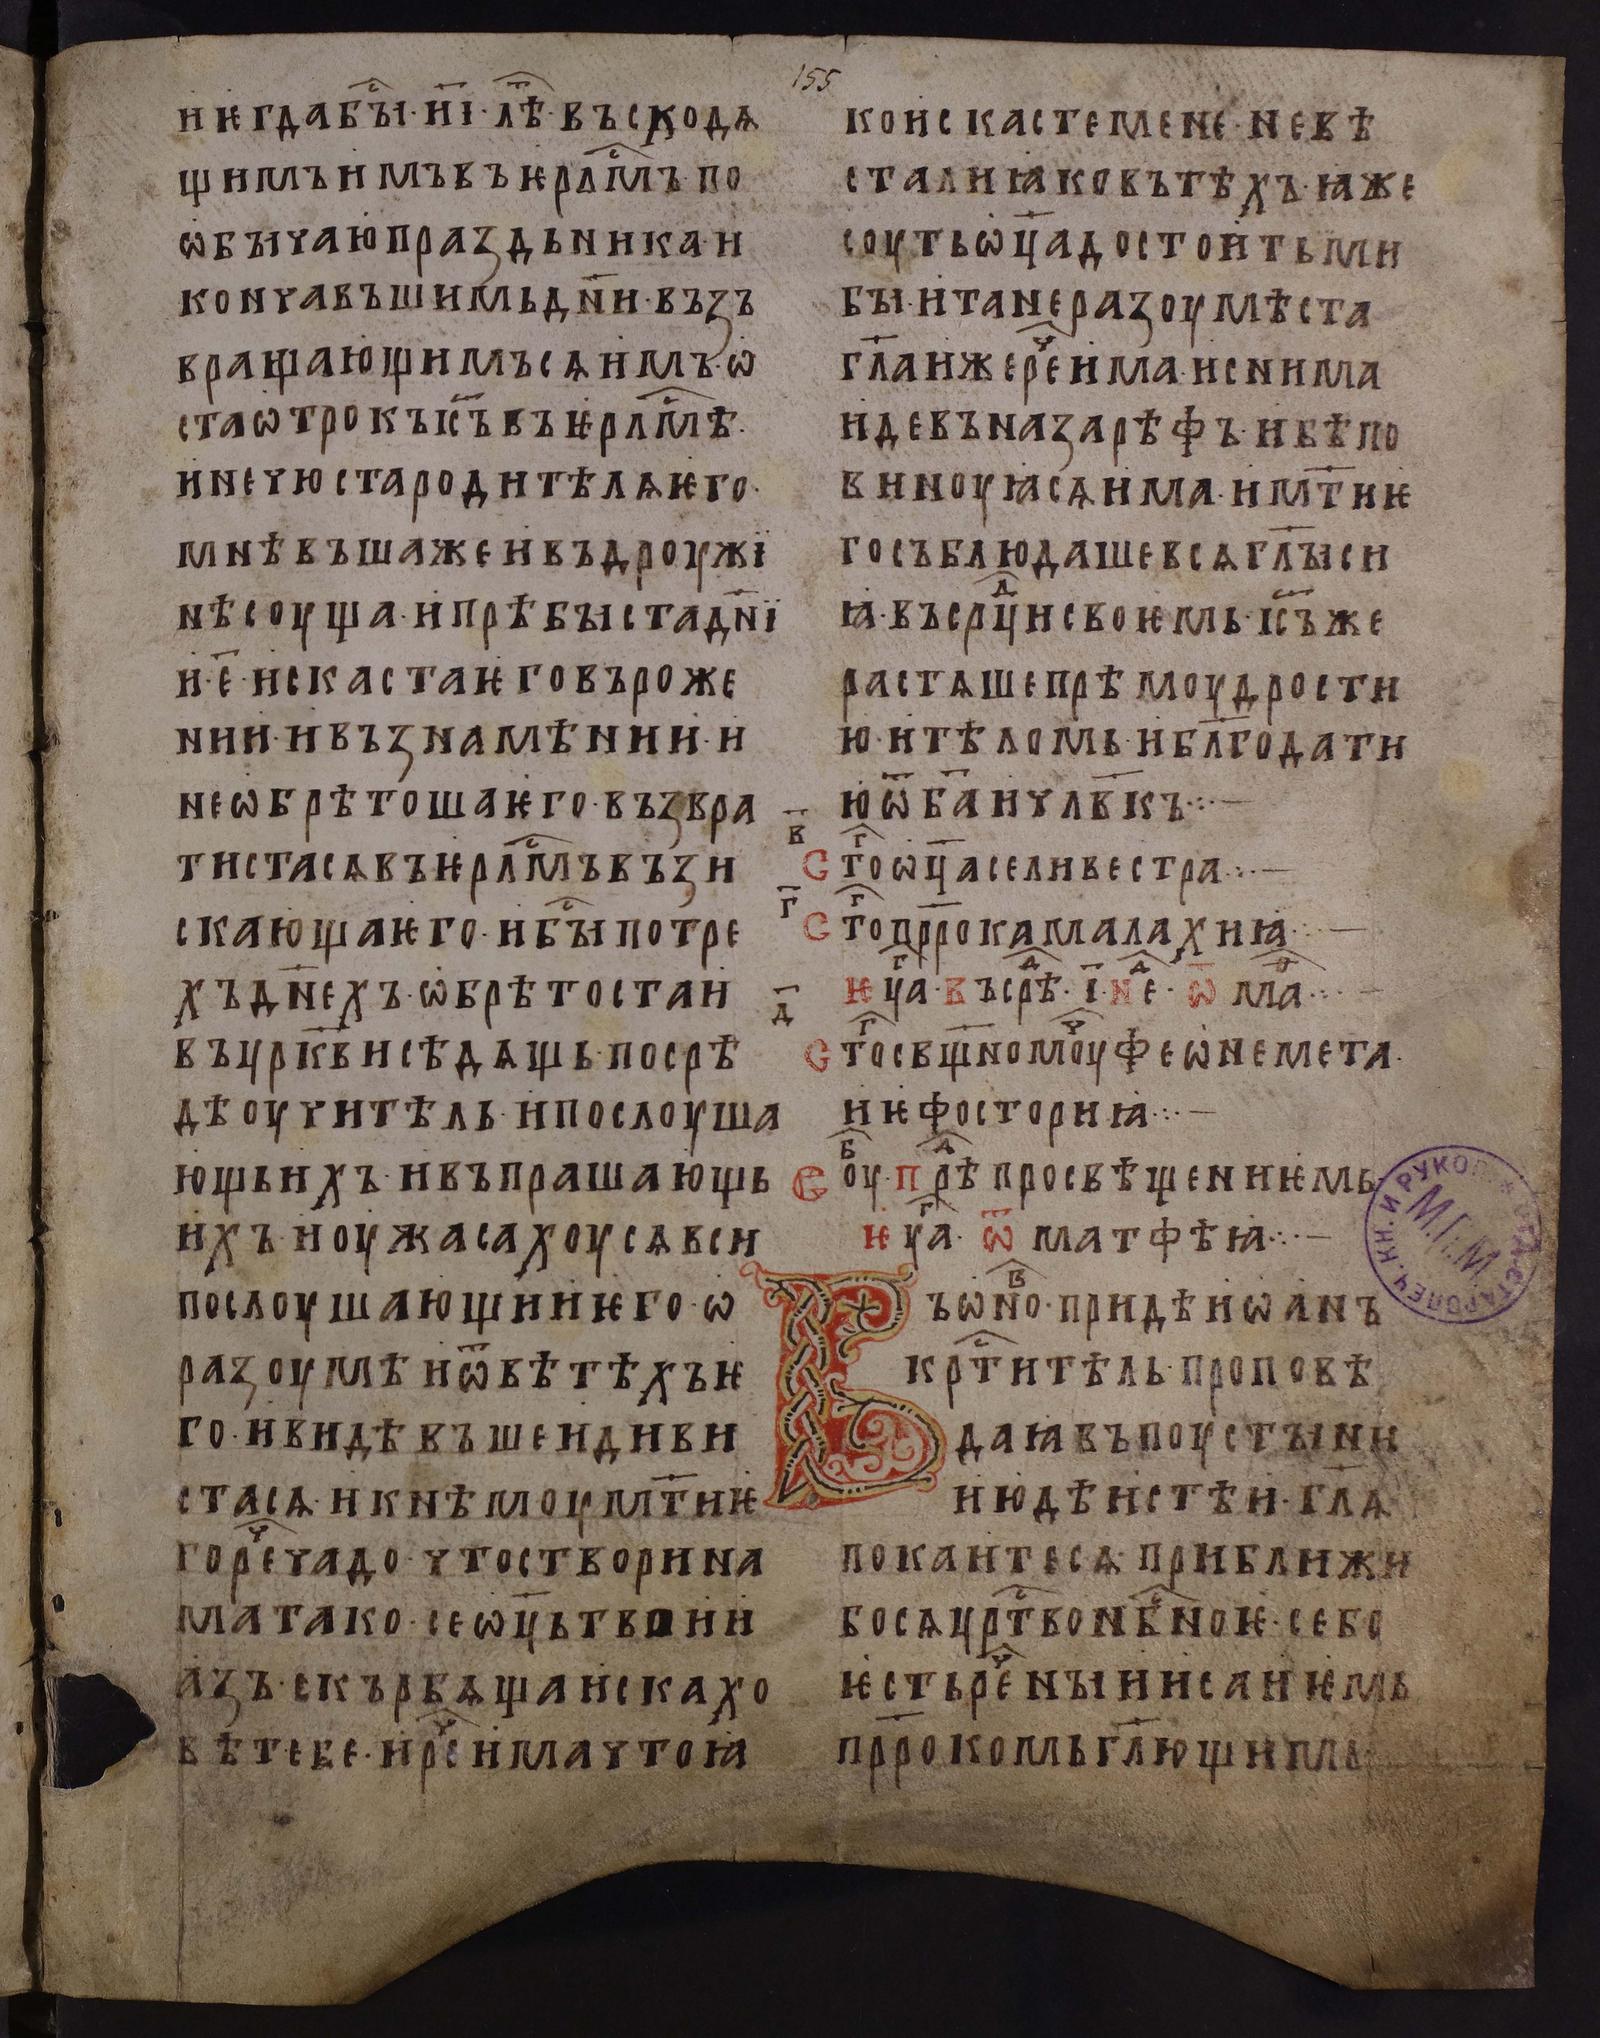 155
и ѥгда бꙑⷭ҇· н҃і· лѣⷮ҇· въсходѧ
щимъ имъ въ ѥрⷭ҇лмъ· по
ѡбꙑчаю праздьника· и
коньчавъшимъ д҃ни· въз
вращающимъсѧ имъ· ѡ
ста ѡтрокъ і҃съ въ ѥрⷭ҇лмѣ·
и не чюста родитѣлѧ ѥго·
мнѣвъша же и въ дроужі
нѣ соуща· и прѣбꙑста д҃нї
и· е҃· искаста ѥго въ роже
нии· и въ знамѣнии· и
не ѡбрѣтоша ѥго· възвра
тистасѧ въ ѥрⷭ҇лмъ възи
скающа ѥго· и бꙑⷭ҇ по тре
хъ д҃нехъ· ѡбрѣтоста и
въ цр҃кви сѣдѧщь· посрѣ
дѣ оучитѣль· и послоуша
ющь ихъ· и въпрашающь
ихъ· и оужасахоусѧ вси
послоушающии ѥго· ѡ
разоумѣ и ѿвѣтѣхъ ѥ
го· и видѣвъше и диви
стасѧ· и к нѣмоу м҃ти ѥ
го реⷱ҇ чадо· что створи на
ма тако· се ѡ҃ць твои и
азъ· скърбѧща искахо
вѣ тебе· и реⷱ҇ има что ꙗ
ко искаста мене· не вѣ
ста ли ꙗко въ тѣхъ· ꙗже
соуть ѡ҃ца достоить ми
бꙑ· и та не разоумѣста
г҃ла иже реⷱ҇ има· и с нима
иде въ назарѣфъ· и бѣ по
виноуꙗсѧ има· и м҃ти ѥ
го съблюдаше всѧ г҃лꙑ си
ꙗ· въ срⷣ҇ци своѥмь· і҃съ же
растѧше прѣмоудрости
ю· и тѣломь· и бл҃годати
ю ѿ б҃а и чл҃вкъ·:·—
в҃
Стⷢ҇о ѡ҃ца селивестра·:·—
г҃
Стⷢ҇о п҃ррока малахиꙗ·:·—
ѥⷢ҇ца· въ срⷣ҇ѣ· і҃· неⷣ҇· ѿ маⷴ҇·:·—
д҃
Стⷢ҇о св҃щномоуⷱ҇ феѡнемета·
и ѥфосториꙗ·:·—
Єⷡ҇ оу· прⷣ҇ѣ просвѣщениѥмь
ѥⷢ҇ца· ѿ матфѣꙗ·:·—
Въ ѡⷡ҇но· приде иѡанъ
крⷭ҇титѣль· проповѣ
даꙗ въ поустꙑни
июдѣистѣи· г҃лѧ
покаитесѧ· приближи
босѧ црⷭ҇тво нбⷭ҇ноѥ· се бо
ѥсть реⷱ҇нꙑи исаиѥмь
п҃ррокомь г҃лющимь